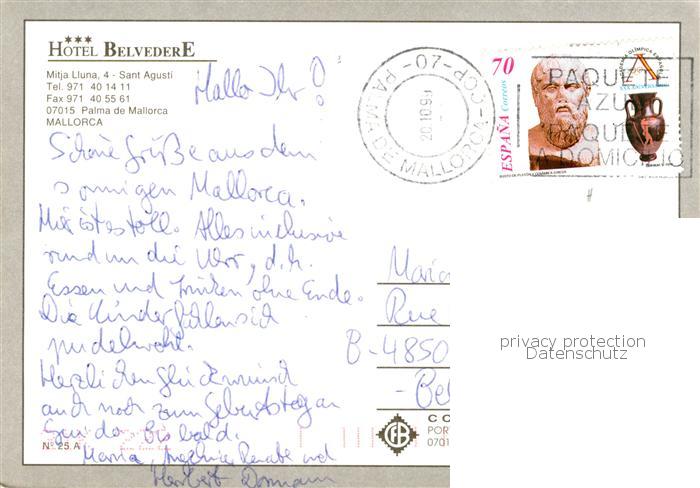 ★★★
HOTEL BELVEDERE
Mitja Lluna, 4 - Sant Agustí
Tel. 971 40 14 11
Fax 971 40 55 61
07015 Palma de Mallorca
MALLORCA
Hallo Ihr!
Schöne Grüße aus dem
sonnigen Mallorca.
Hier ist es toll. Alles inclusive
rund um die Uhr, d.h.
Essen und trinken ohne Ende.
Die Kinder fühlen sich
pudelwohl.
Herzlichen Glückwunsch
auch noch zum Geburtstag an
Bis bald.
Renate und
Herbert
Nº 25.A
PALMA DE MALLORCA-COP-07
70
ESPAÑA Correos
ACADEMIA OLIMPICA ESPAÑOLA
XXX ANIVERSARIO
BUSTO DE PLATON Y CERAMICA GRIEGA
PAQUETE
AZUL
PAQUETE
A DOMICILIO
Maria
Rue
B-4850
- Bel
CO
POR
0701
privacy protection
Datenschutz